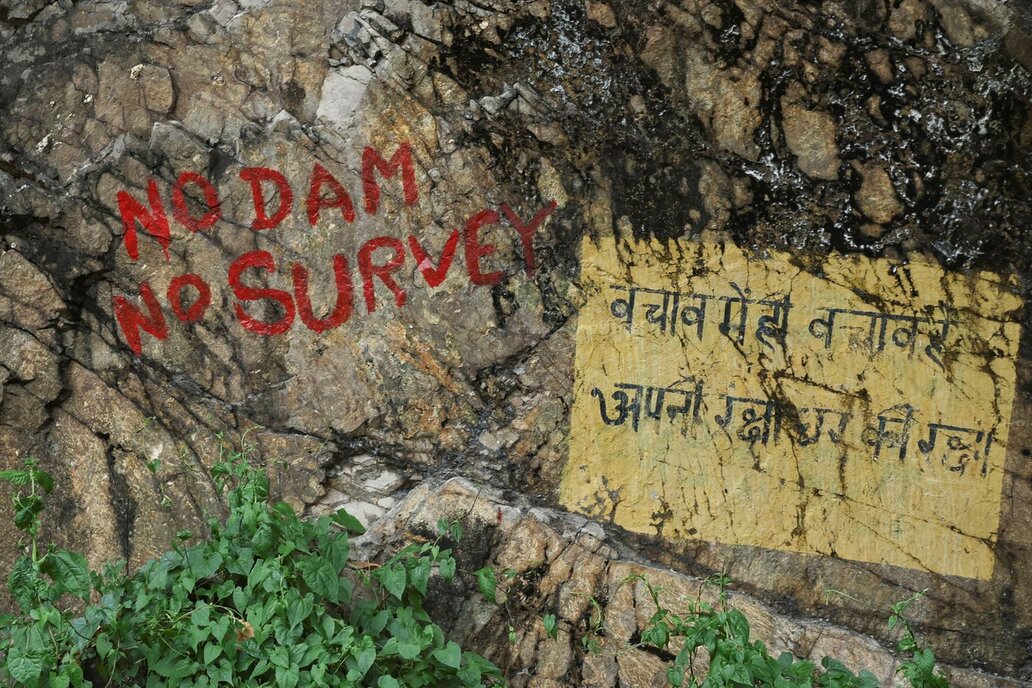 NO DAM
NO SURVEY
बचाव में ही बचाव है
अपनी रक्षा घर की रक्षा